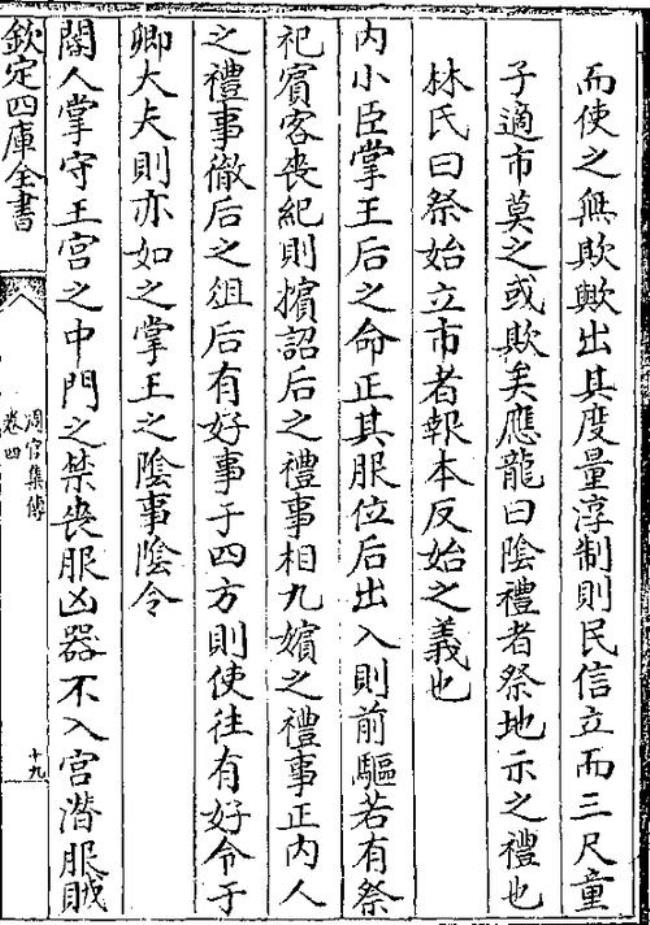 而使之無欺歟出其度量淳制則民信立而三尺童
子適市莫之或欺矣應龍曰陰禮者祭地示之禮也
林氏曰祭始立市者報本反始之義也
內小臣掌王后之命正其服位后出入則前驅若有祭
祀賓客喪紀則擯詔后之禮事相九嬪之禮事正內人
之禮事徹后之俎后有好事于四方則使往有好令于
卿大夫則亦如之掌王之陰事陰令
閽人掌守王宮之中門之禁喪服凶器不入宮潛服賊
欽定四庫全書
周官集傳
卷四
十九